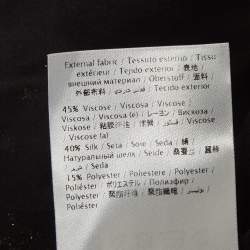 External fabric / Tessuto esterno / Tissu
extérieur / Tejido exterior / 表地 /
внешний материал / Oberstoff / 面料 /
外部布料 / قماش خارجي / Tecido exterior
45% Viscose / Viscosa / Viscose /
Viscosa / Viscosa (e) / レーヨン / Вискоза /
Viskose / 粘胶纤维 / فسكوز /
Viscose (a)
40% Silk / Seta / Soie / Seda / 絹 /
Натуральный шелк / Seide / 桑蚕丝 /
/ حرير / Seda
15% Polyester / Poliestere / Polyester /
Poliéster / ポリエステル / Полиэфир /
Polyester / 聚酯纤维 / 聚酯纖維 / بوليستر /
Poliéster